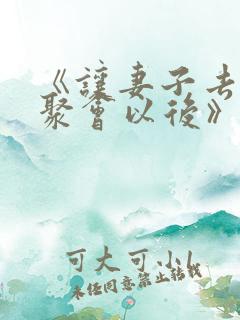 《讓妻子去
聚會以後》
可大可小
未经同意禁止转载